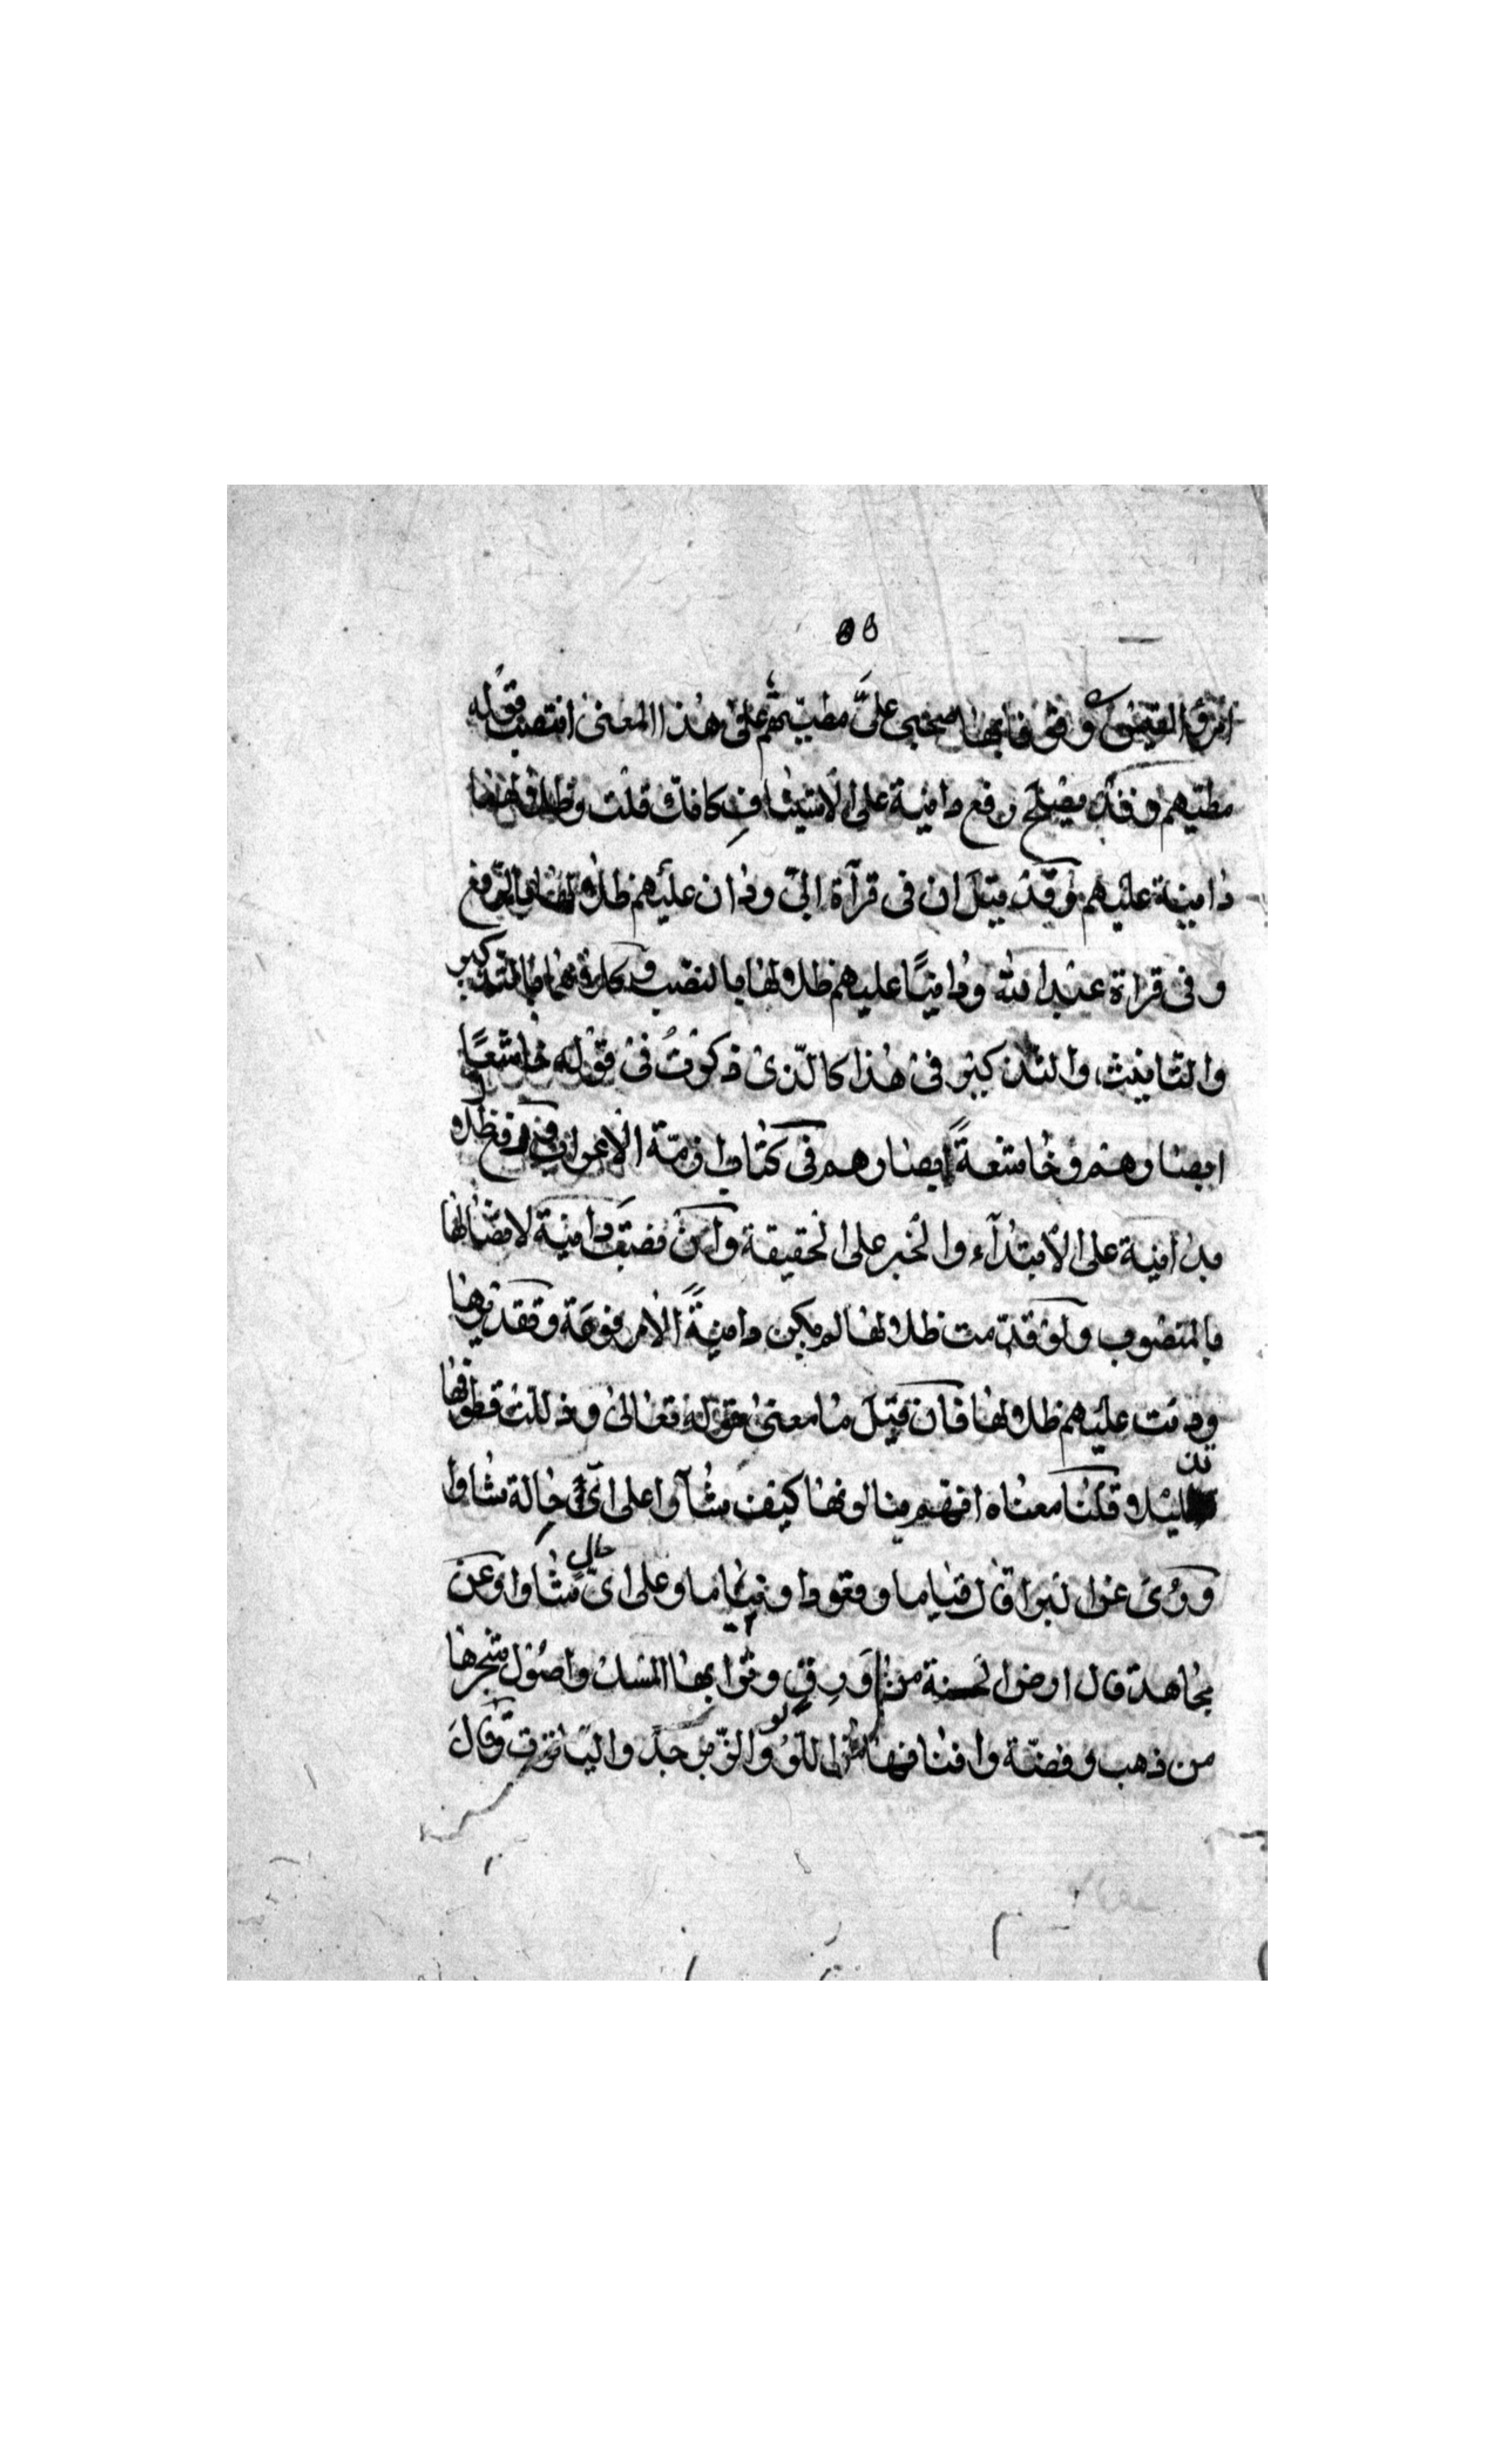 ٥٥
امرئ القيس وقوفا بها صحبي علىّ مطيّهم على هذا المعنى انتصب قوله
مطيّهم وقد يصلح رفع دانية على الاستيناف كانك قلت وظلالها
دانية عليهم وقد قيل ان في قرآة ابيّ ودان عليهم ظلالها بالرفع
وفي قراة عبد الله ودانيًا عليهم ظلالها بالنصب وكلاهما بالتذكير
والتانيث والتذكير في هذا كالذى ذكرت في قوله خاشعًا
ابصارهم وخاشعةً ابصارهم في كتاب ازمّة الاعراب فيرفع ظلالها
بدانية على الابتدآء والخبر على الحقيقة وان نصبت دانية لاتصالها
بالمنصوب ولو قدّمت ظلالها لم يكن دانيةً الا مرفوعة وتقديرها
ودنت عليهم ظلالها فان قيل ما معنى قوله تعالى وذللت قطوفها
تذليلا قلنا معناه انهم ينالونها كيف شآوا على اىّ حالة شاوا
وروى عن البرا قال قياما وقعودا ونياما وعلى اىّ حالٍ شاوا وعن
مجاهد قال ارض الجنة من ورق وترابها المسك واصول شجرها
من ذهب وفضّة وافنانها اللؤلو والزّبرجد والياقوت وقال